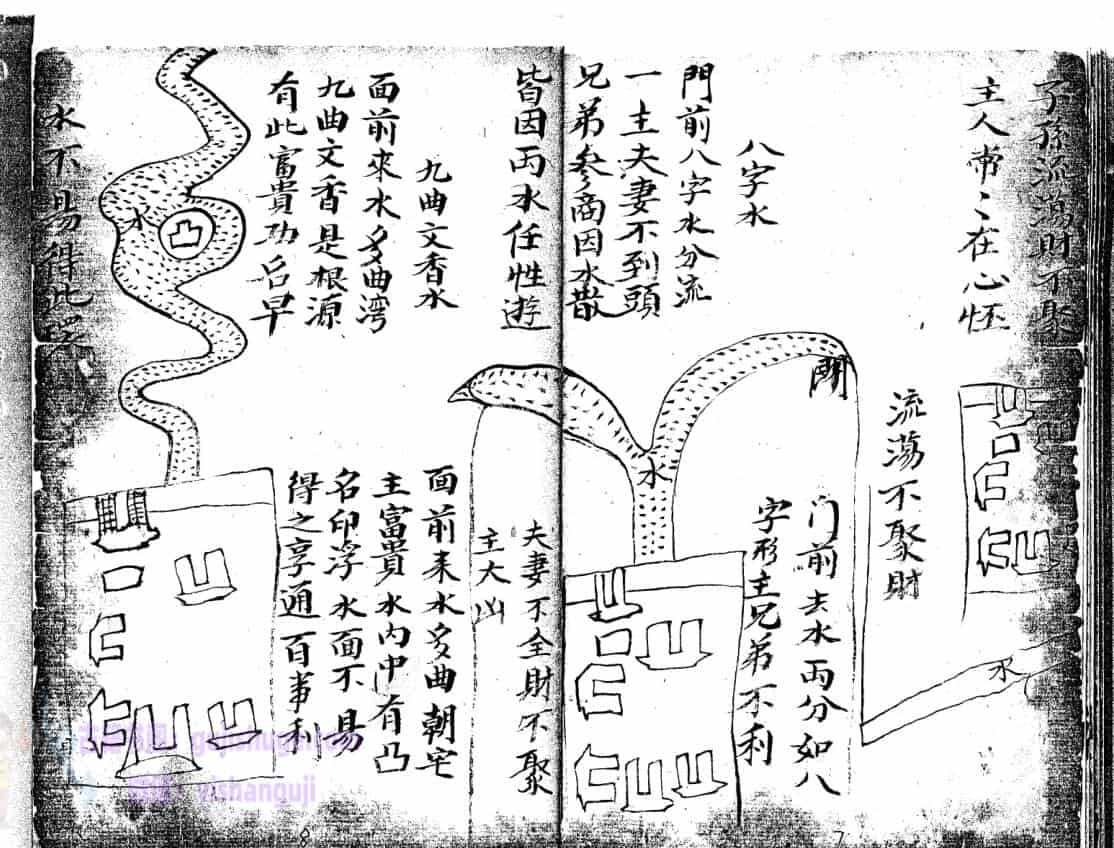 子孫流蕩財不聚
主人常〻在心怀
流荡不聚財
水
八字水
門前八字水分流
一主夫妻不到頭
兄弟參商因水散
皆因両水任性遊
門前去水両分如八
字形主兄弟不利
夫妻不全財不聚
主大凶
水
九曲文香水
面前來水多曲湾
九曲文香是根源
有此富貴功名早
面前来水多曲朝宅
主富貴水内中有凸
名印浮水面不易
得之享通百事利
水
凸
水不易得此
7
8
yishanguji